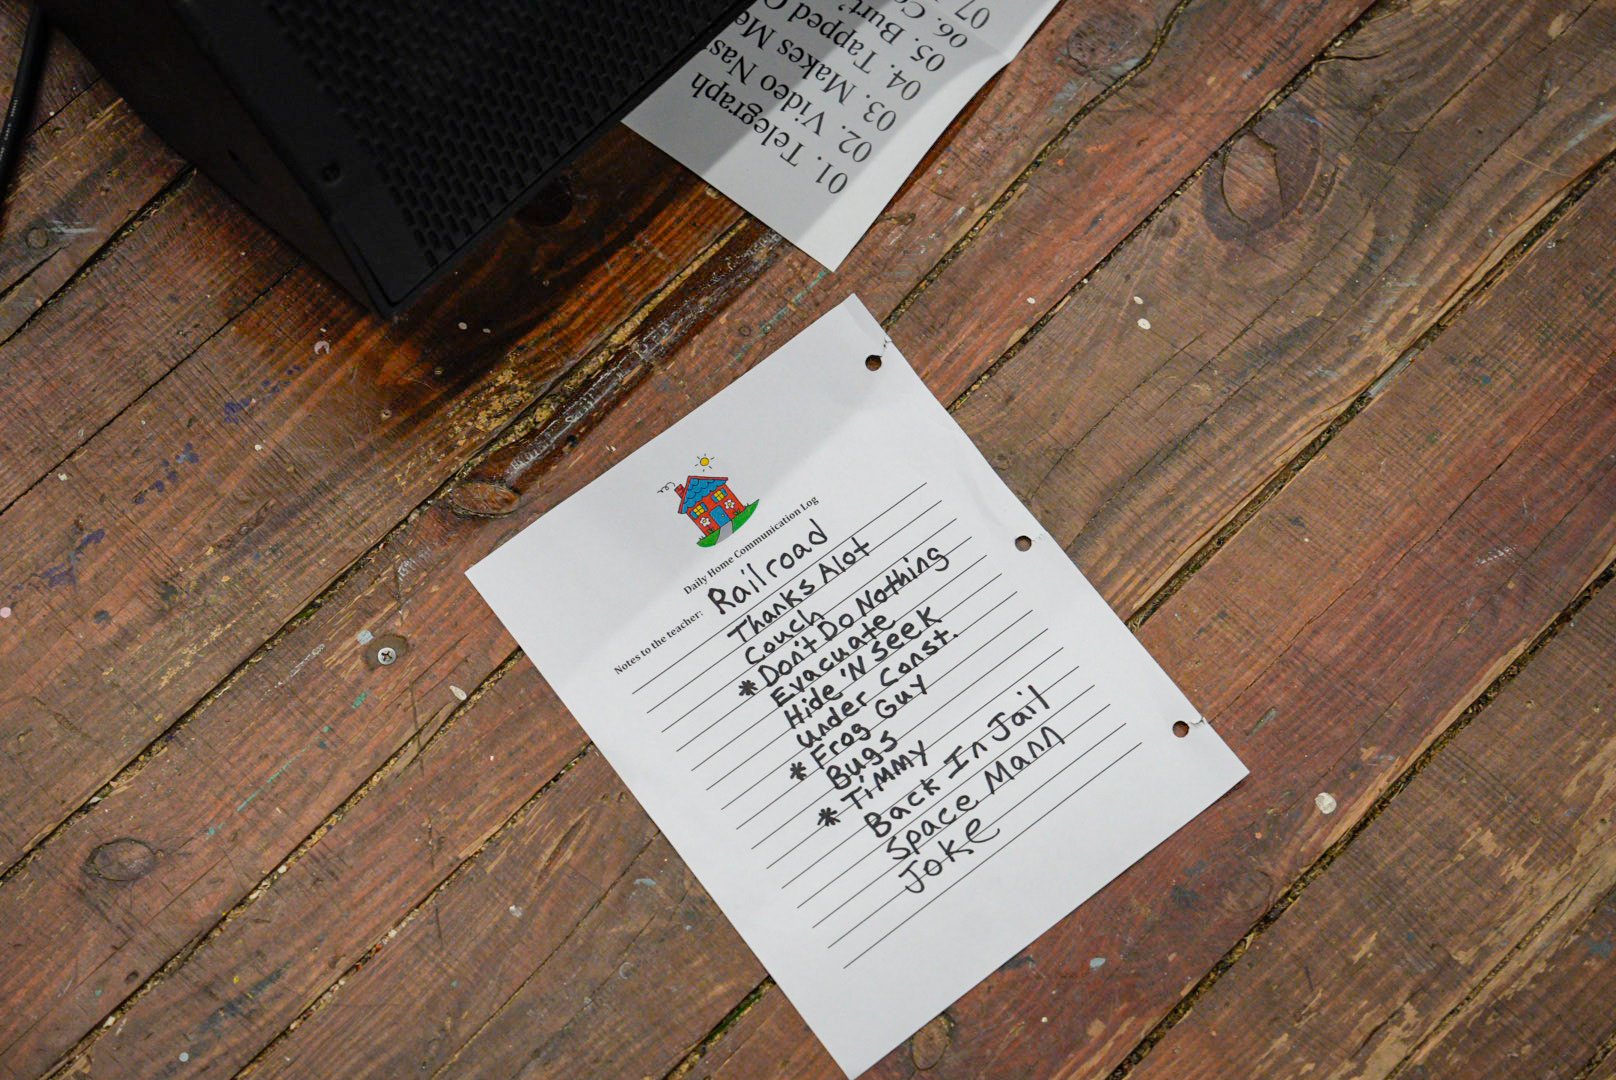 01. Telegraph
02. Video
03. Makes
04. Tapped
05. Burt'
06.
07
Daily Home Communication Log
Notes to the teacher: Railroad
Thanks Alot
Couch
* Don't Do Nothing
Evacuate
Hide 'N Seek
Under Const.
* Frog Guy
Bugs
* Timmy
Back In Jail
Space Mann
Joke